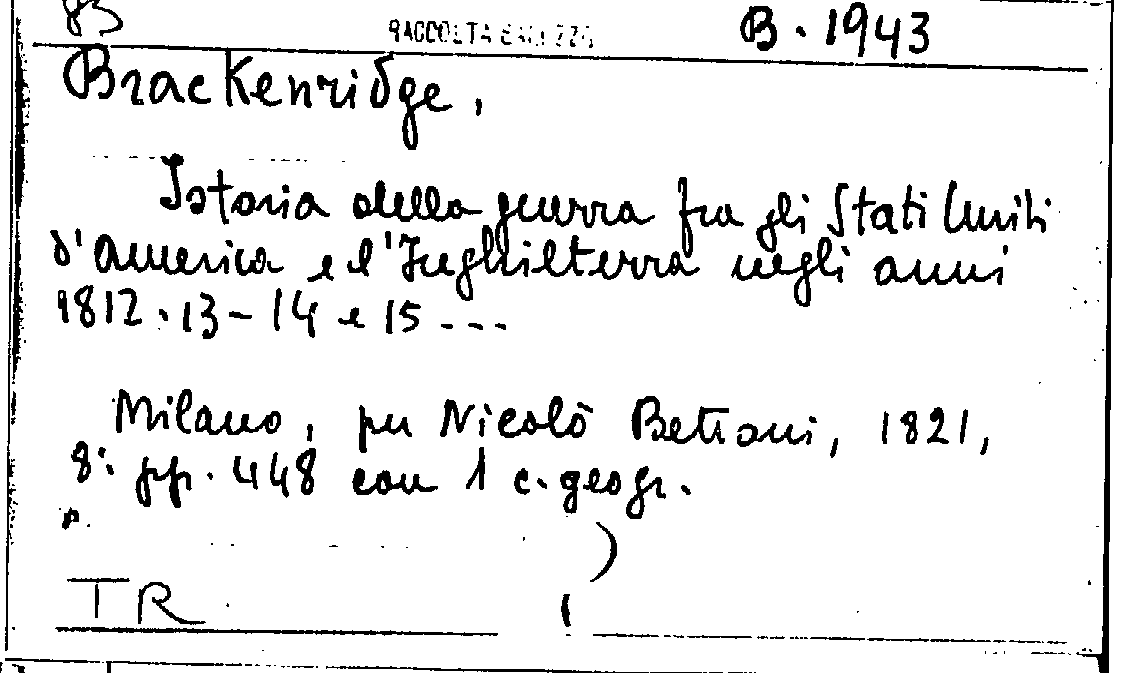 83
RACCOLTA
B. 1943
Brackenridge,
Istoria della guerra fra gli Stati Uniti
d'America e l'Inghilterra negli anni
1812.13-14 e 15 ---
Milano, per Nicolò Bettoni, 1821,
8: pp. 448 con 1 c. geogr.
TR